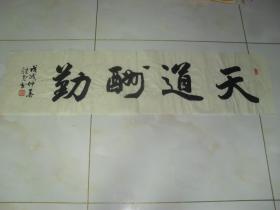 天道酬勤
戊戌仲春